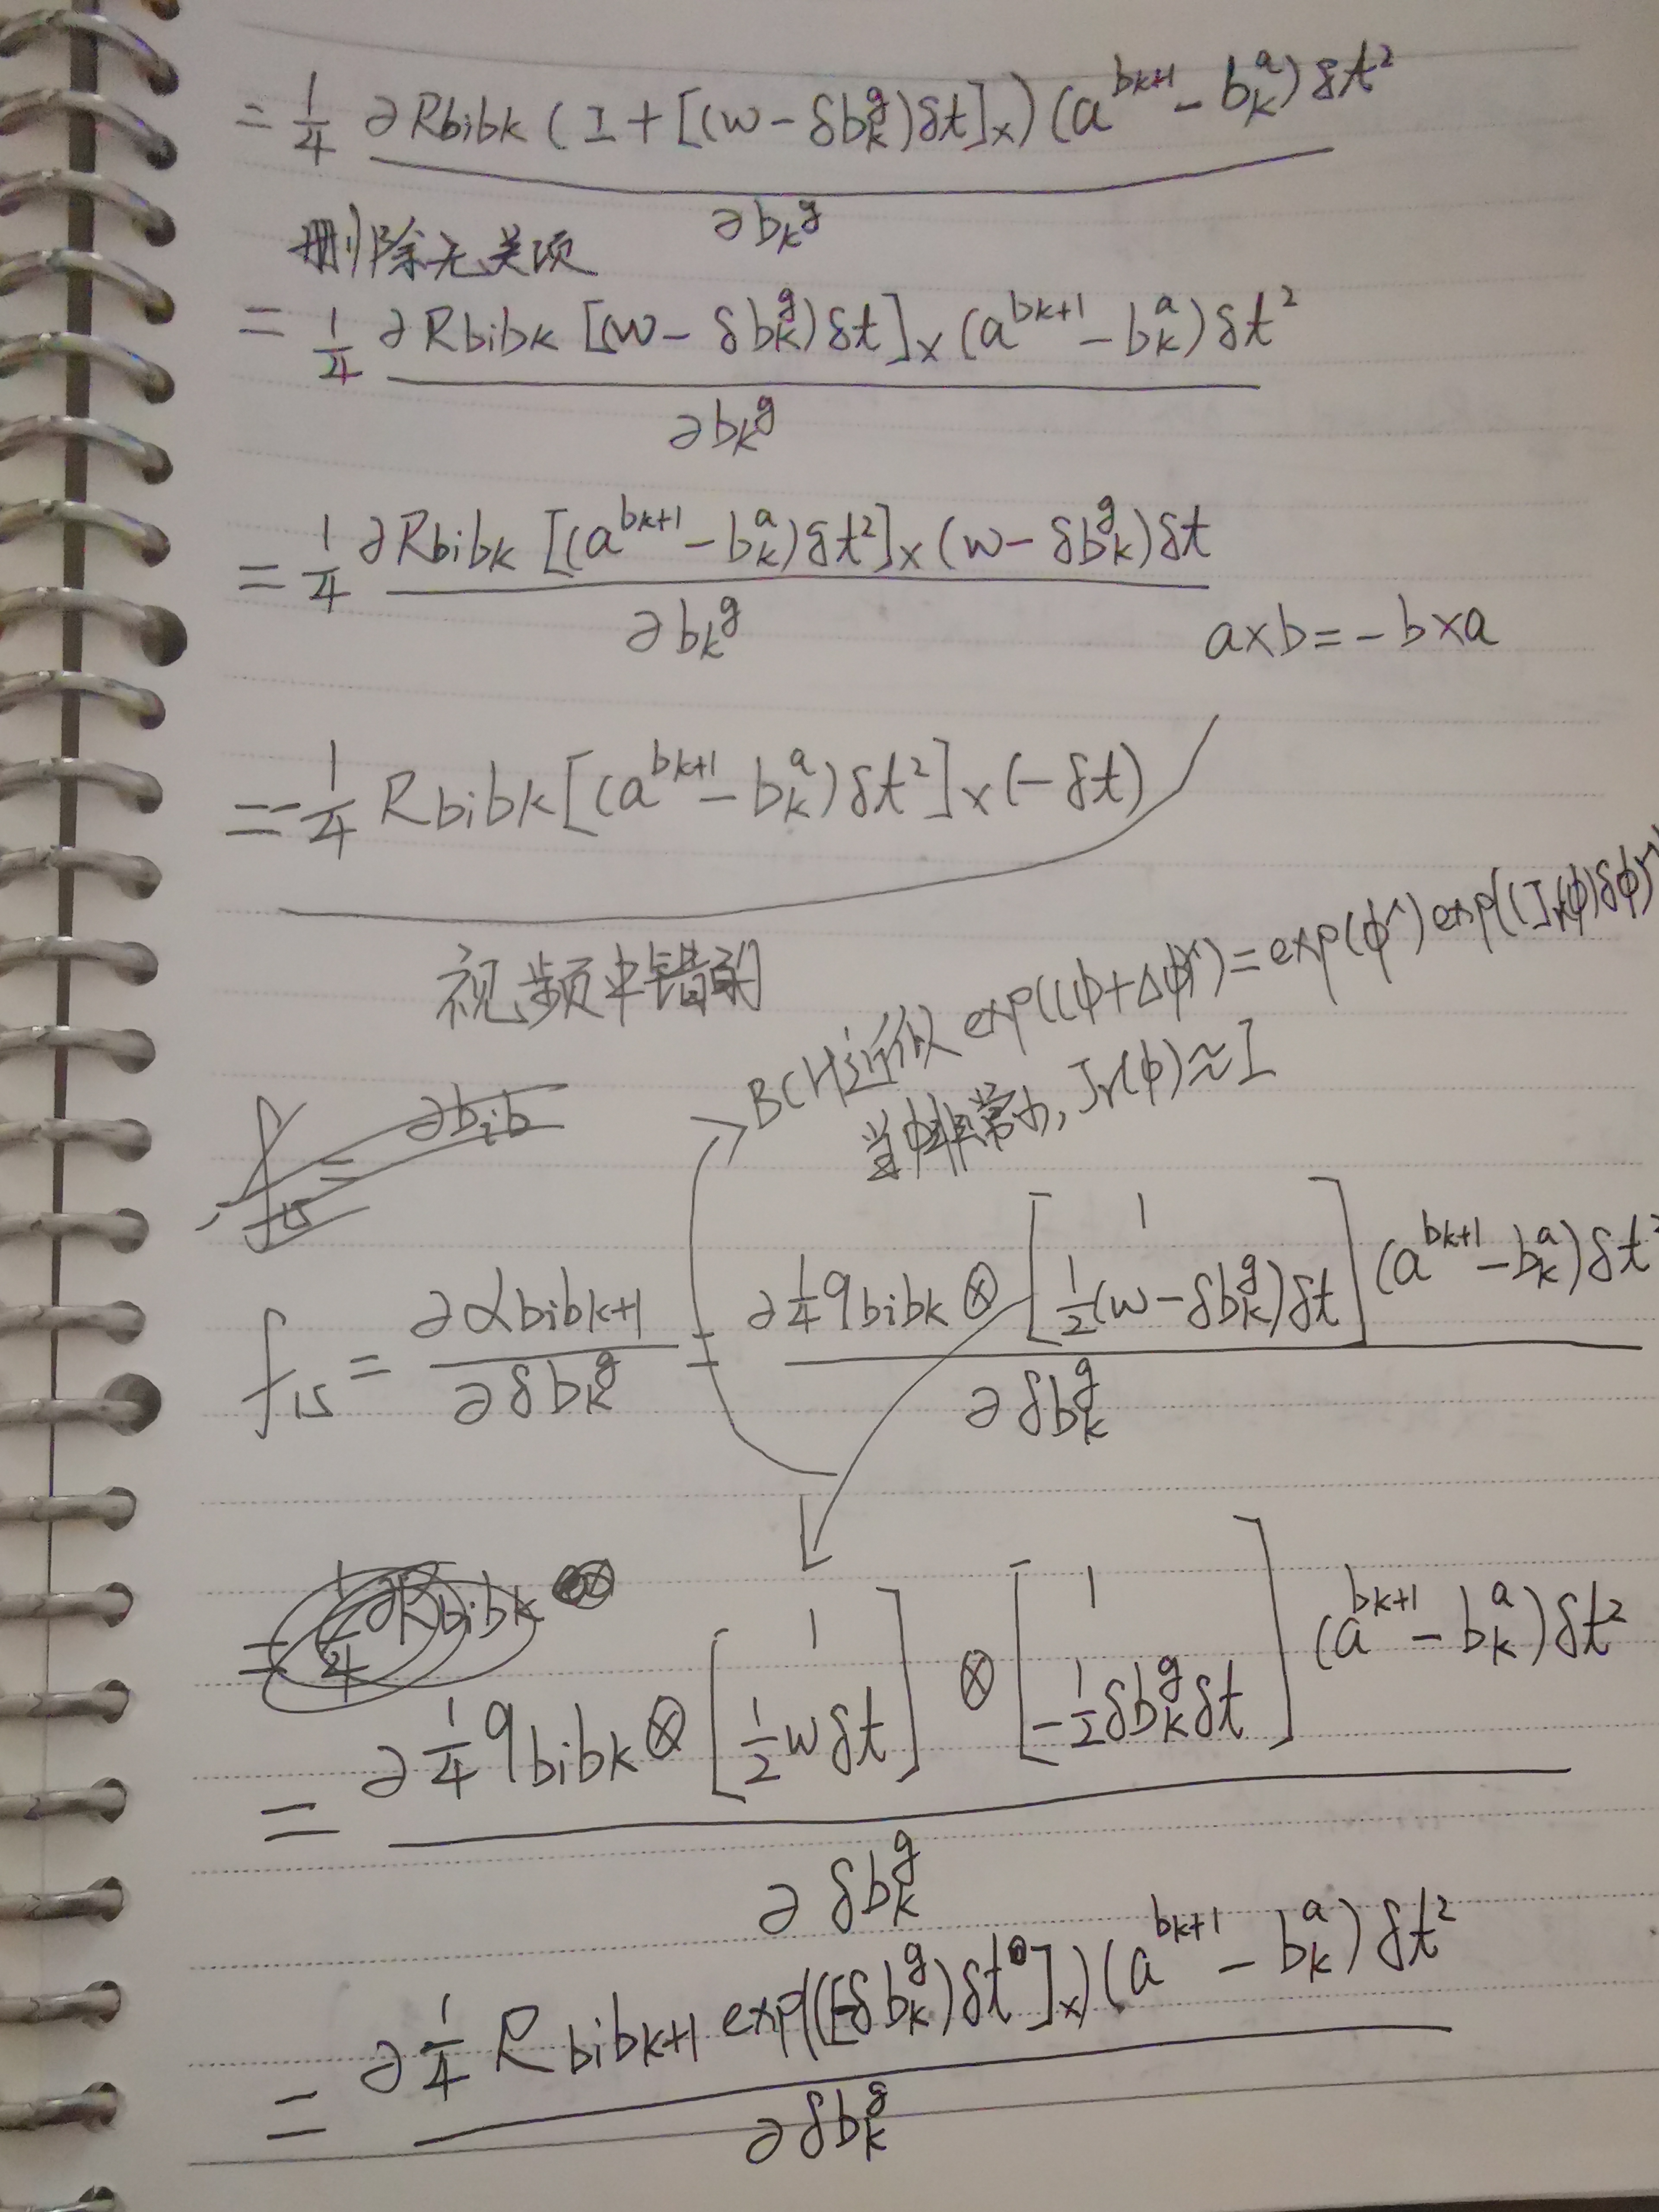 = 1/4 ∂R_{bibk}(I+[(w-δb_k^g)δt]_×)(a^{bk+1}-b_k^a)δt²
∂b_k^g
删除无关项
= 1/4 ∂R_{bibk}[(w-δb_k^g)δt]_×(a^{bk+1}-b_k^a)δt²
∂b_k^g
= 1/4 ∂R_{bibk}[(a^{bk+1}-b_k^a)δt²]_×(w-δb_k^g)δt
∂b_k^g
a×b=-b×a
=-1/4 R_{bibk}[(a^{bk+1}-b_k^a)δt²]_×(-δt)
视频中错的
BCH近似 exp((ϕ+Δϕ)^)=exp(ϕ^)exp((Jr(ϕ)δϕ)^)
当ϕ非常小,Jr(ϕ)≈I
f_{15} = ∂α_{bibk+1} / ∂δb_k^g = ∂1/4 q_{bibk}⊗[1; 1/2(w-δb_k^g)δt](a^{bk+1}-b_k^a)δt²
∂δb_k^g
= ∂1/4 q_{bibk}⊗[1; 1/2wδt]⊗[1; -1/2δb_k^gδt](a^{bk+1}-b_k^a)δt²
∂δb_k^g
= ∂1/4 R_{bibk+1} exp(([-δb_k^g)δt]_×)(a^{bk+1}-b_k^a)δt²
∂δb_k^g